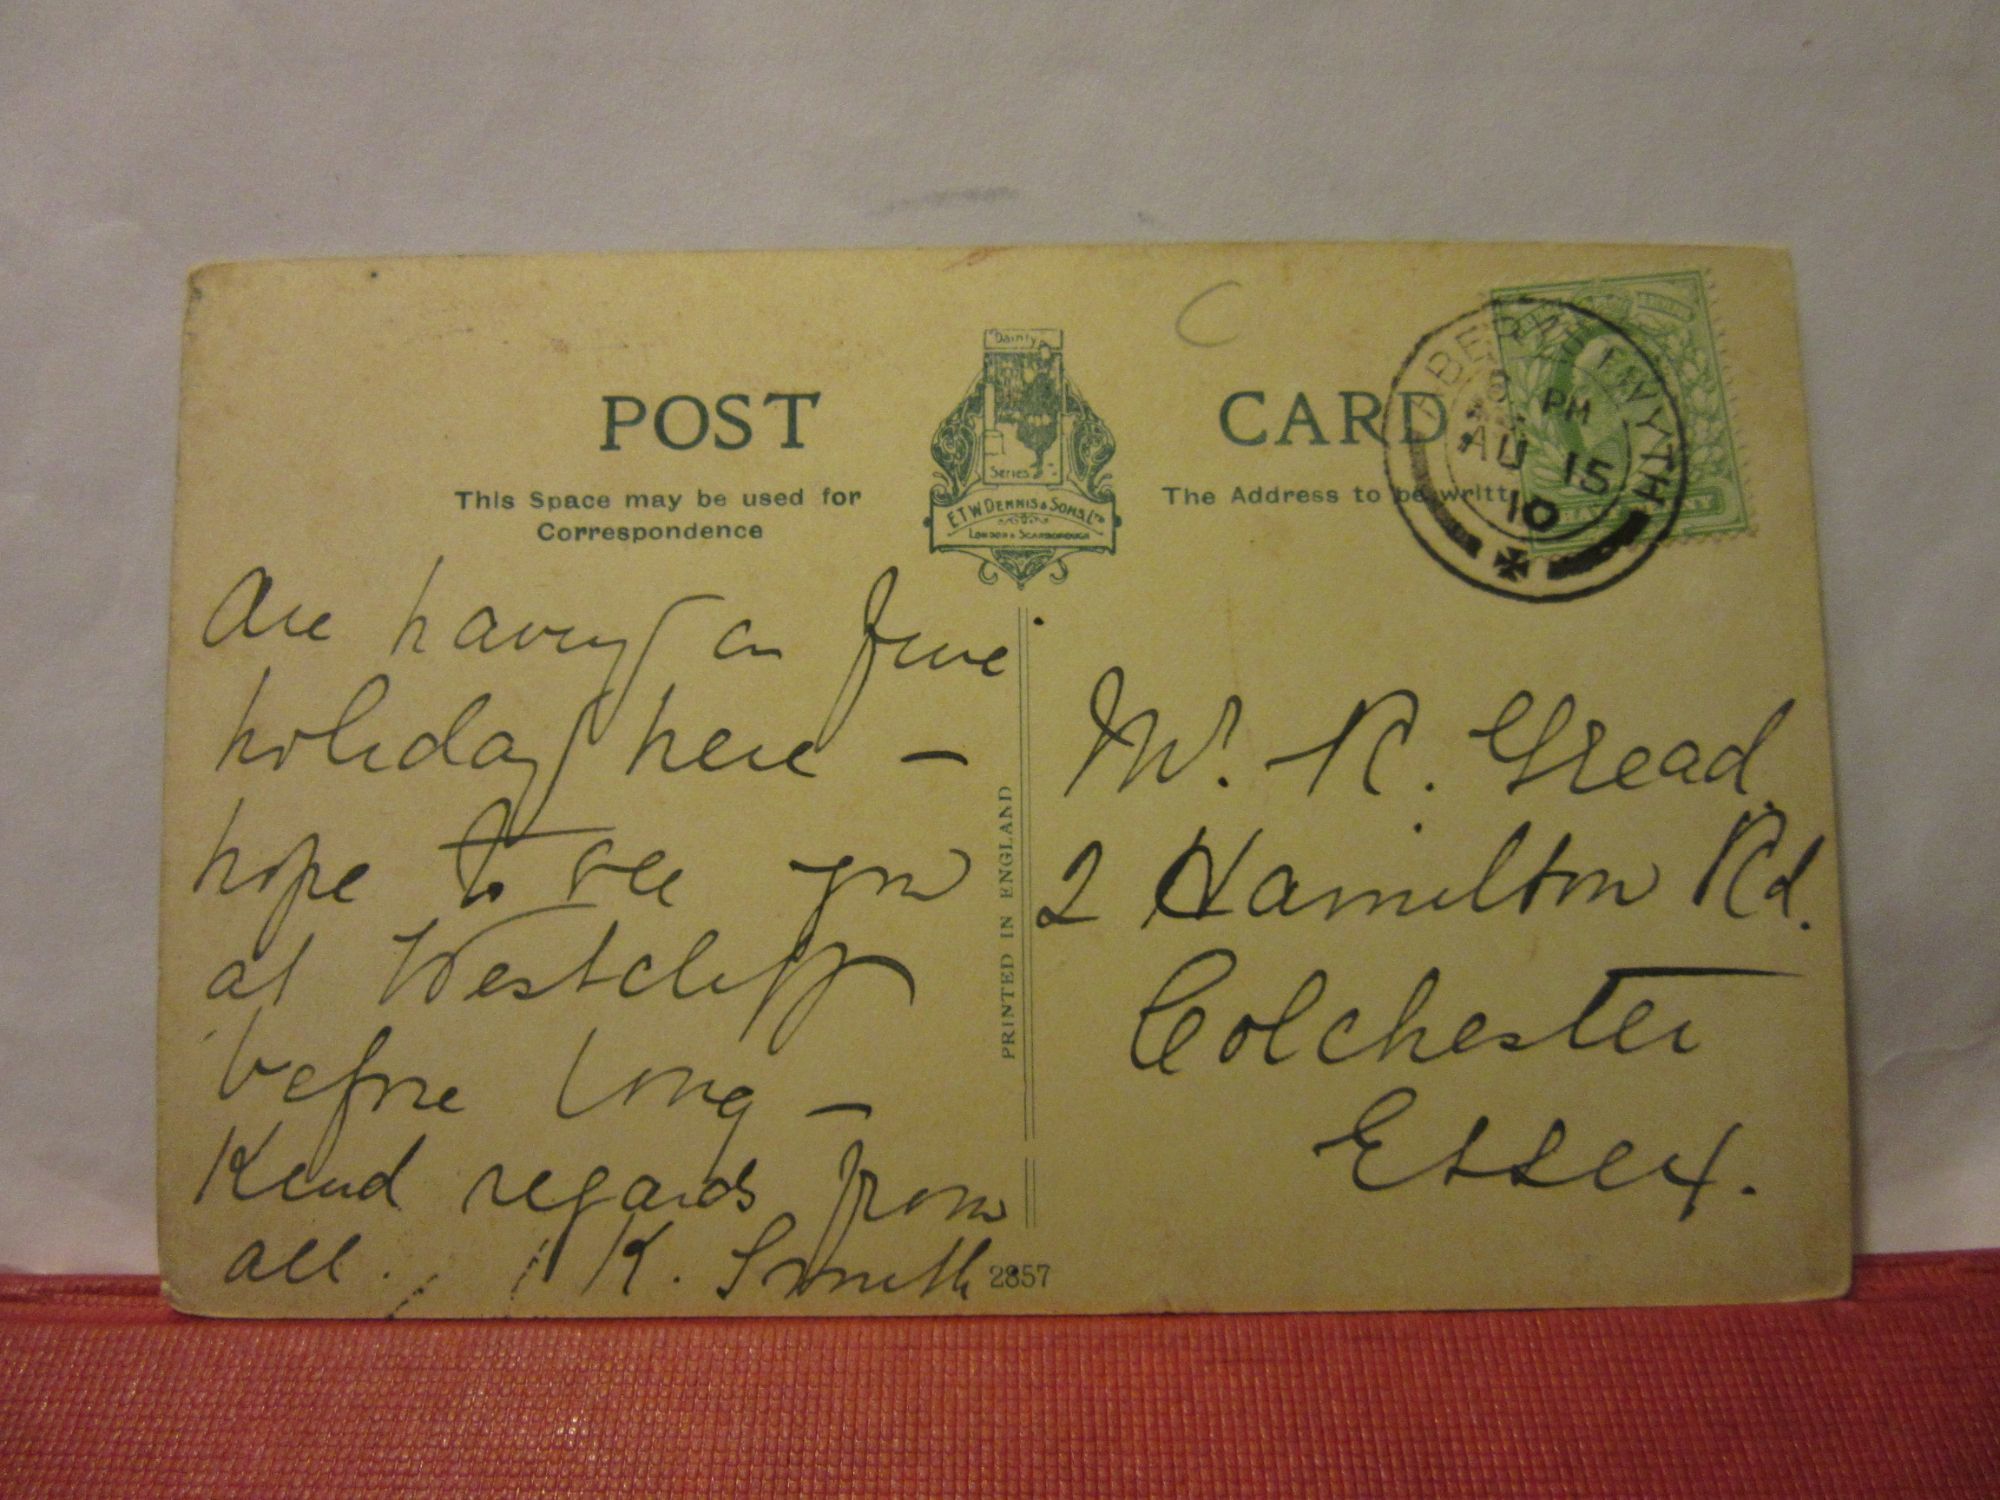 C
POST CARD
Dainty
Series
E.T.W. DENNIS & SONS, LTD
LONDON & SCARBOROUGH
This Space may be used for
Correspondence
The Address to be writt
ABERYSTWYTH
PM
AU 15
10
Are having a fine
holiday here –
hope to see you
at Westcliff
before long –
Kind regards from
all. K. Smith
PRINTED IN ENGLAND
2857
Mr. R. Gread
2 Hamilton Rd.
Colchester
Essex.